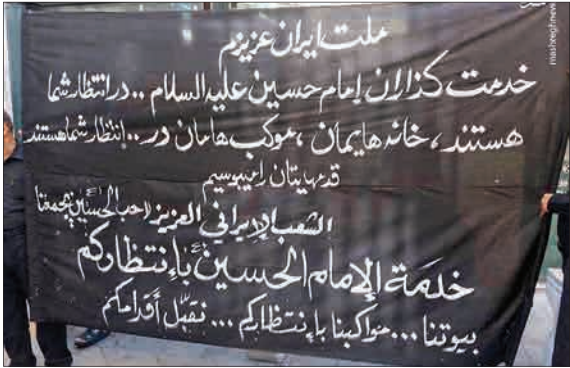 ملت ایران عزیزم
خدمت گذاران إمام حسین علیه السلام .. در انتظار شما
هستند ، خانه هایمان ، موکب هامان در .. إنتظار شما هستند
قدمهایتان را میبوسیم
الشعب الإیراني العزیز (حب الحسین یجمعنا
خدمة الإمام الحسین بإنتظارکم
بیوتنا ... مواکبنا بإنتظارکم ... نقبّل أقدامکم
mashreghnews